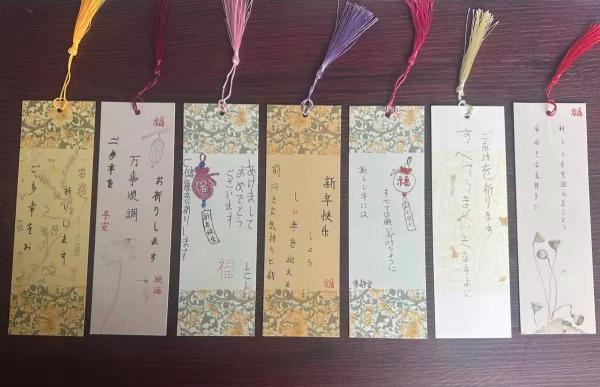 ご多幸をお
祈りします
福
ご多幸を
万事順調
お祈りします
平安
順遂
あけまして
おめでとう
ございます
ご健康を祈ります
福
新年快乐
新年快乐
前向きな気持ちで新
しい年を迎えま
しょう
福
福
新しい年には
すべての願いが叶うように
を祈ります
すべてうまくいきますように
福
前向きな気持ちで
新しい年を迎えましょう